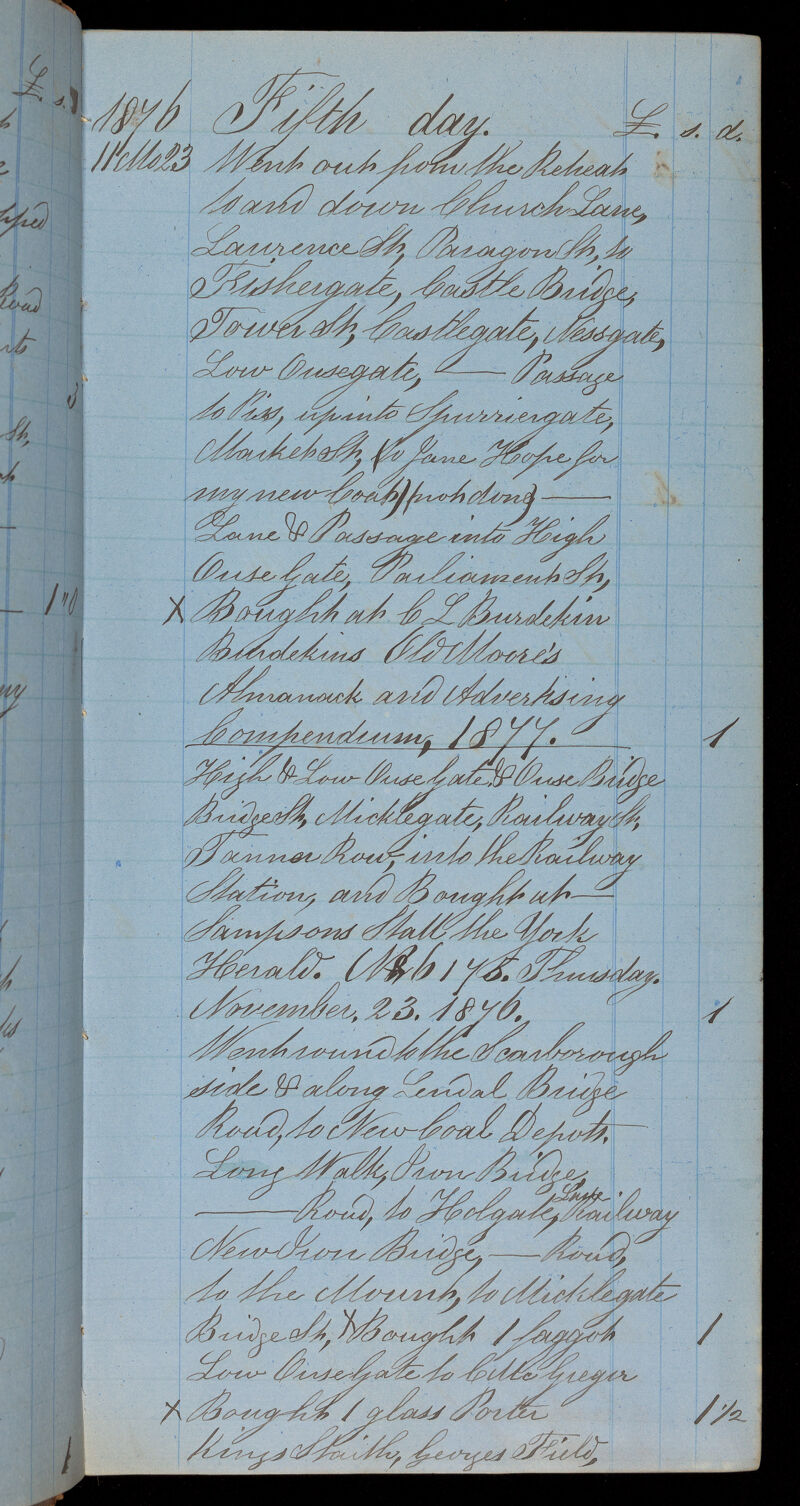 1876 Fifth day. £. s. d.
11th Mo 23 Went out from the Retreat
to and down Church Lane,
Lawrence St, Paragon St, to
Fishergate, Castle Bridge,
Tower St, Castlegate, Nessgate,
Low Ousegate, — Passage
to Piss, up into Spurriergate,
Market St, (to Jane Hope for
my new Coat) (not done) —
Lane & Passage into High
Ouse Gate, Parliament St,
X Bought at C L Burdekin
Burdekins Old Moore's
Almanack and Advertising
Compendium, 1877. 1
High & Low Ouse Gate, & Ouse Bridge
Bridge St, Micklegate, Railway St,
Tanner Row, into the Railway
Station, and Bought at —
Sampsons Stall the York
Herald. No 6175. Thursday.
November. 23. 1876. 1
Went round to the Scarborough
side & along Lendal Bridge
Road, to New Coal Depots.
Long Walk, Iron Bridge,
— Road, to Holgate, Lane Railway
New Iron Bridge, — Road,
to the Mount, to Micklegate
Bridge St, X Bought 1 faggot 1
Low Ouse Gate to C Mc Gregor
X Bought 1 glass Porter 1 1/2
Kings Staith, Georges Field,